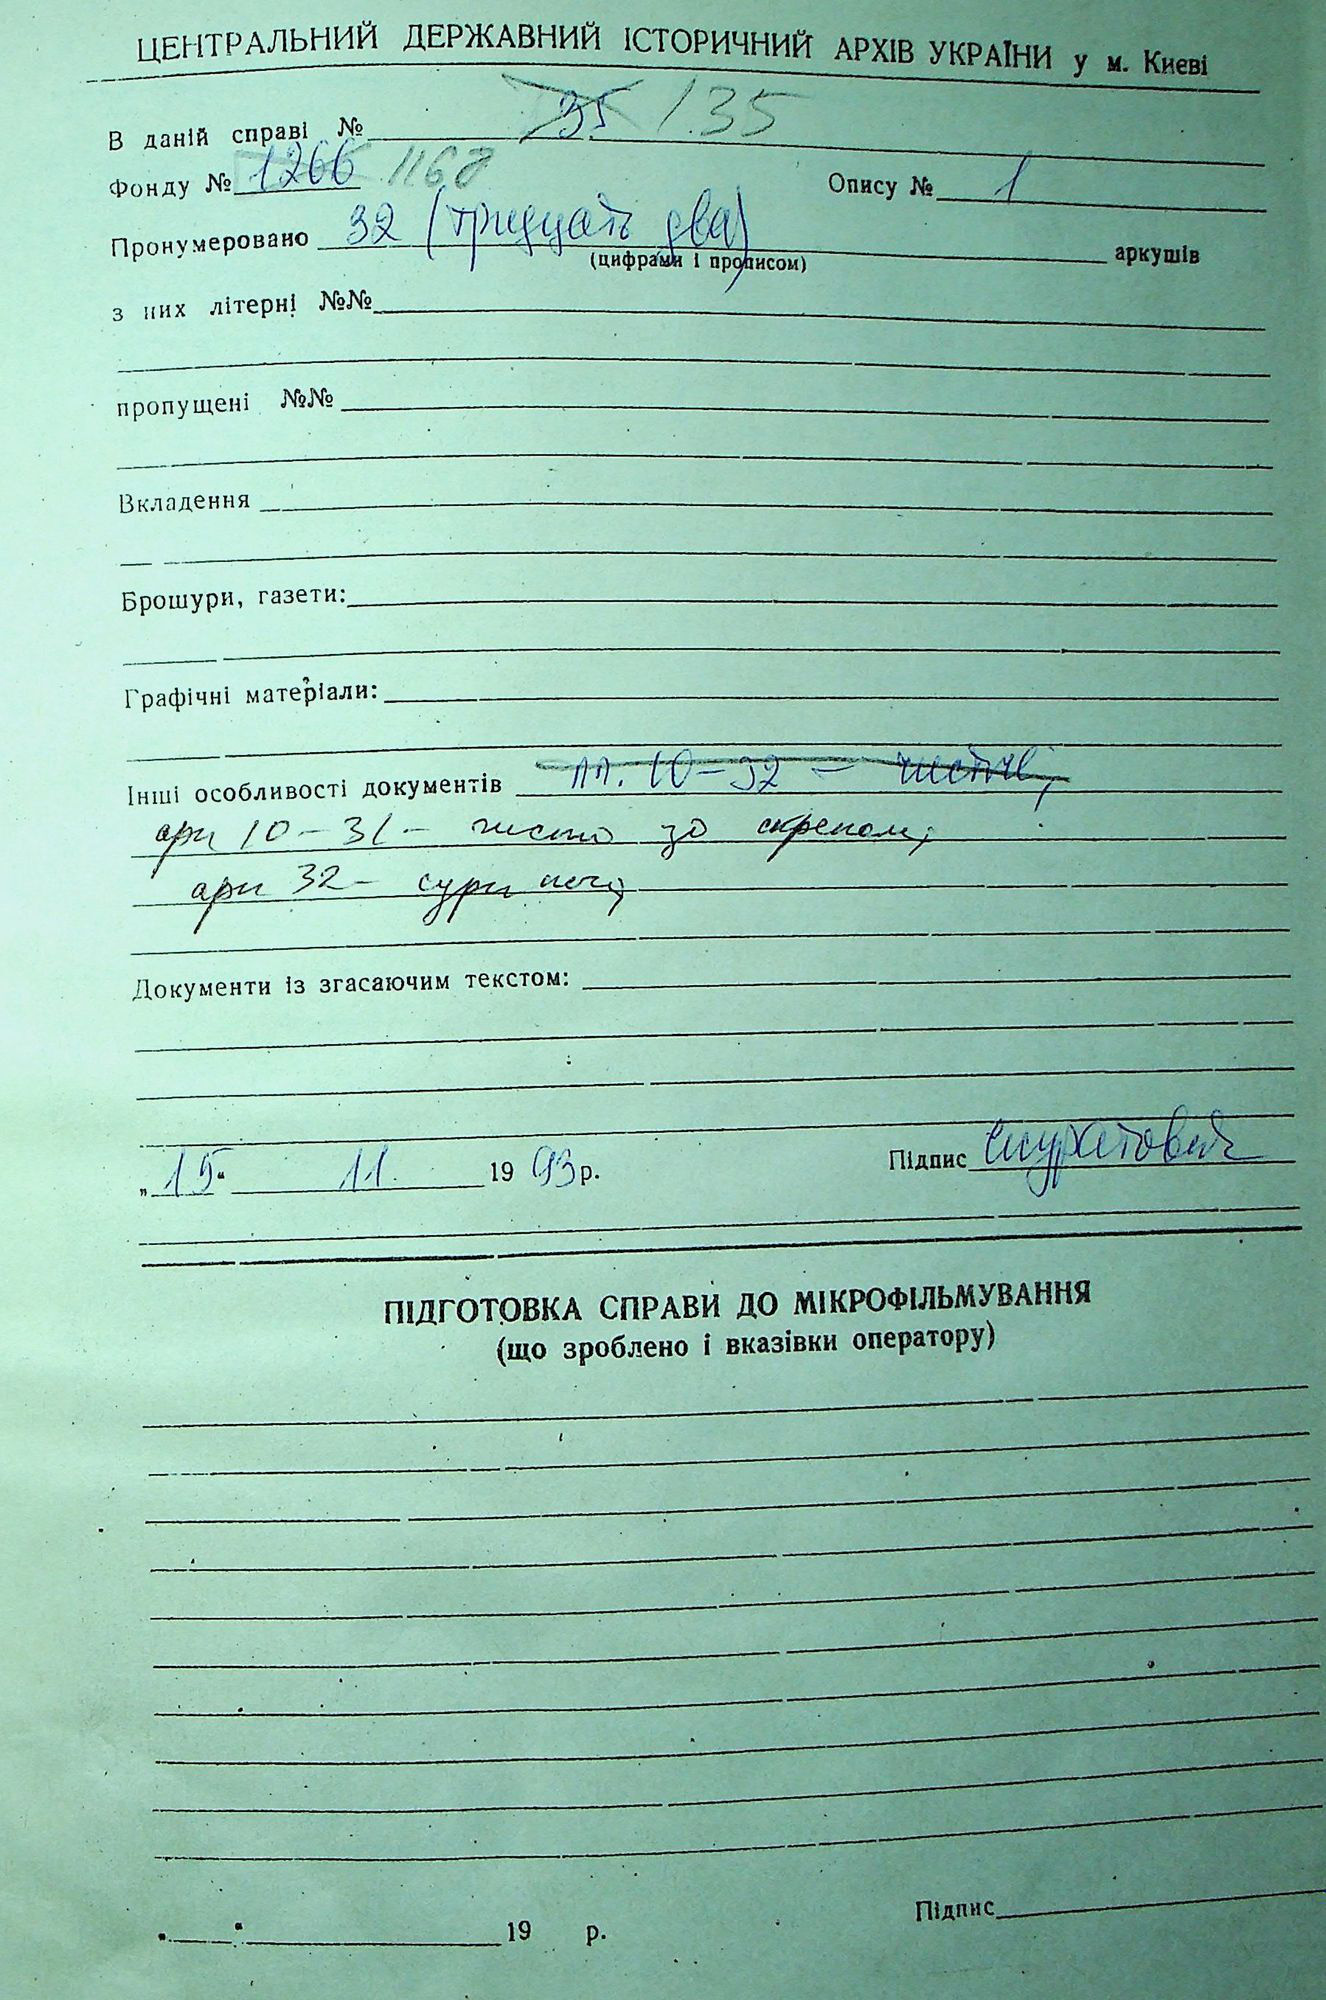 ЦЕНТРАЛЬНИЙ ДЕРЖАВНИЙ ІСТОРИЧНИЙ АРХІВ УКРАЇНИ у м. Києві
В даній справі № 35 135
Фонду № 1266 1168 Опису № 1
Пронумеровано 32 (тридцать два) аркушів
(цифрами і прописом)
з них літерні №№
пропущені №№
Вкладення
Брошури, газети:
Графічні матеріали:
Інші особливості документів лл. 10-32 – чисті;
арк 10-31 – чисто за скрепою;
арк 32 –
Документи із згасаючим текстом:
„15“ 11. 1993 р. Підпис
ПІДГОТОВКА СПРАВИ ДО МІКРОФІЛЬМУВАННЯ
(що зроблено і вказівки оператору)
19 р. Підпис